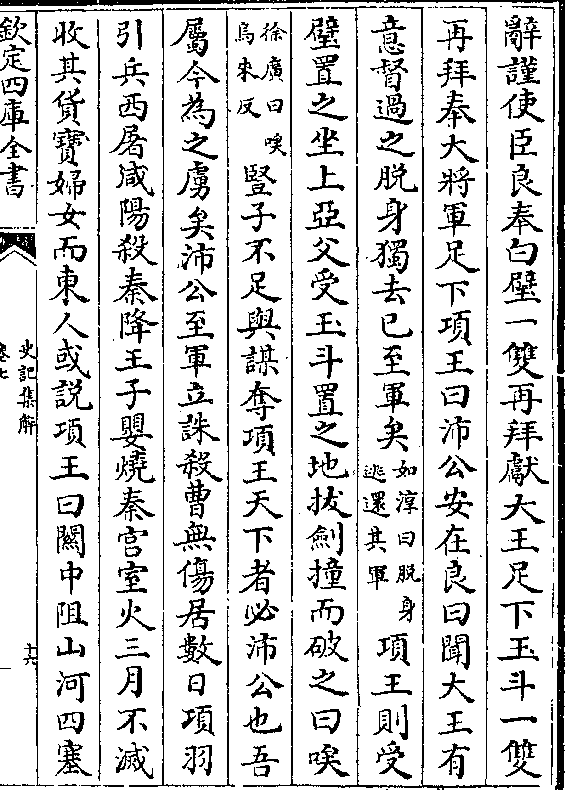 辭謹使臣良奉白璧一雙再拜獻大王足下玉斗一雙
再拜奉大將軍足下項王曰沛公安在良曰聞大王有
意督過之脫身獨去已至軍矣如淳曰脫身逃還其軍項王則受
璧置之坐上亞父受玉斗置之地拔劍撞而破之曰唉
徐廣曰唉烏來反豎子不足與謀奪項王天下者必沛公也吾
屬今為之虜矣沛公至軍立誅殺曹無傷居數日項羽
引兵西屠咸陽殺秦降王子嬰燒秦宫室火三月不滅
收其貨寶婦女而東人或説項王曰關中阻山河四塞
欽定四庫全書
史記集解
卷七
十六